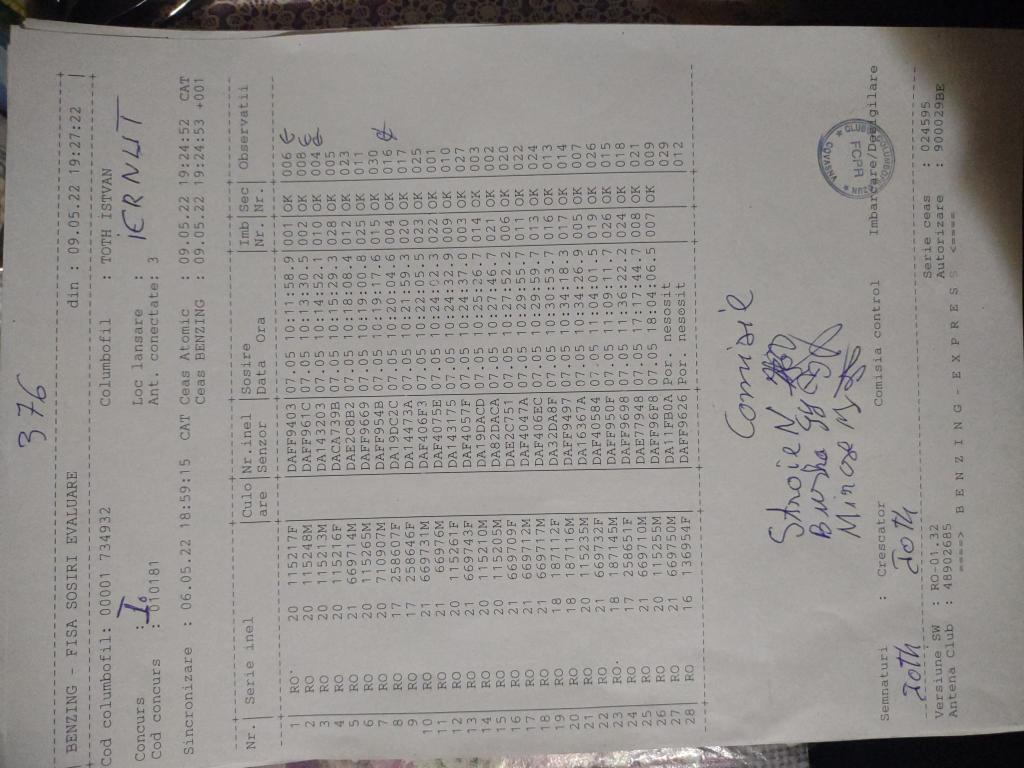 376
BENZING - FISA SOSIRI EVALUARE din : 09.05.22 19:27:22
Cod columbofil: 00001 734932 Columbofil : TOTH ISTVAN
Concurs : I. Loc lansare : IERNUT
Cod concurs : 010181 Ant. conectate: 3
Sincronizare : 06.05.22 18:59:15 CAT Ceas Atomic : 09.05.22 19:24:52 CAT
Ceas BENZING : 09.05.22 19:24:53 +001
Nr. Serie inel Culo Nr.inel Sosire Imb Sec Observatii
are Senzor Data Ora Nr. Nr.
1 RO. 20 115217F DAFF9403 07.05 10:11:58.9 001 OK 006
2 RO 20 115248M DAFF961C 07.05 10:13:30.5 002 OK 008
3 RO 20 115213M DA143203 07.05 10:14:52.1 010 OK 004
4 RO 20 115216F DACA739B 07.05 10:15:29.3 028 OK 005
5 RO 21 669714M DAE2C8B2 07.05 10:18:08.4 012 OK 023
6 RO 20 115265M DAFF9669 07.05 10:19:00.8 025 OK 011
7 RO 20 710907M DAFF954B 07.05 10:19:17.6 015 OK 030
8 RO 17 258607F DA19DC2C 07.05 10:20:04.6 004 OK 016
9 RO 17 258646F DA14473A 07.05 10:21:59.3 020 OK 017
10 RO 21 669731M DAF406F3 07.05 10:22:05.5 023 OK 025
11 RO 21 66976M DAF4075E 07.05 10:24:02.3 022 OK 001
12 RO 20 115261F DA143175 07.05 10:24:32.9 009 OK 010
13 RO 21 669743F DAF4057F 07.05 10:24:37.0 003 OK 027
14 RO 20 115210M DA19DACD 07.05 10:25:26.7 014 OK 003
15 RO 20 115205M DA82DACA 07.05 10:27:46.7 021 OK 002
16 RO 21 669709F DAE2C751 07.05 10:27:52.2 006 OK 020
17 RO 21 669712M DAF4047A 07.05 10:29:55.7 011 OK 022
18 RO 21 669717M DAF406EC 07.05 10:29:59.7 013 OK 024
19 RO 18 187112F DA32DA8F 07.05 10:30:53.7 016 OK 013
20 RO 18 187116M DAFF9497 07.05 10:34:18.3 017 OK 014
21 RO 20 115235M DA16367A 07.05 10:34:26.9 005 OK 007
22 RO 21 669732F DAF40584 07.05 11:04:01.5 019 OK 026
23 RO. 18 187145M DAFF950F 07.05 11:09:11.7 026 OK 015
24 RO 17 258651F DAFF9698 07.05 11:36:22.2 024 OK 018
25 RO 21 669710M DAE77948 07.05 17:17:44.7 008 OK 021
26 RO 20 115255M DAFF96F8 07.05 18:04:06.5 007 OK 009
27 RO 21 669750M DA11FB0A Por. nesosit 029
28 RO 16 136954F DAFF9626 Por. nesosit 012
Comisie
Stroie N
Semnaturi : Crescator Comisia control Imbarcare/Desigilare
Toth Toth
Versiune SW : RO-01.32 Serie ceas : 024595
Antena Club : 48902685 Autorizare : 900029BE
====> B E N Z I N G - E X P R E S S <====
CLUB COLUMBOFIL
FCPR
COVASNA